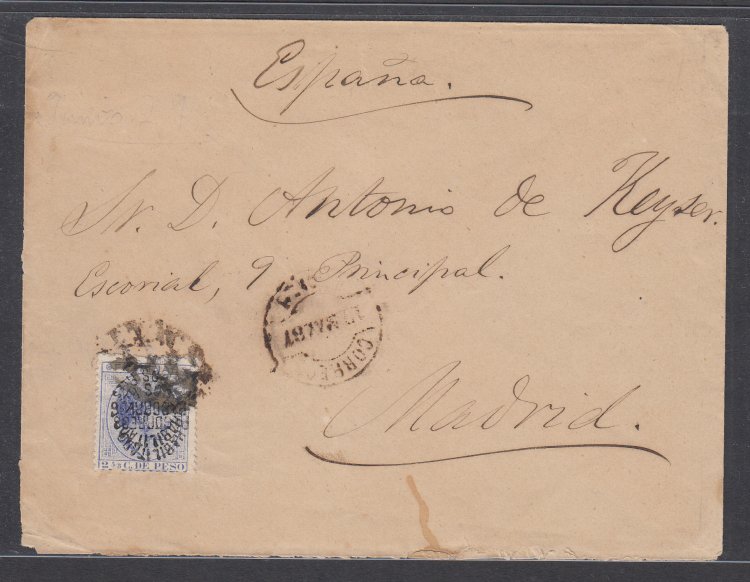 España.
Sr. D. Antonio de Keyser.
Escorial, 9 Principal.
Madrid.
CORREOS
MAY 87
HABILITADO
CORREOS
2 4/8 C. DE PESO